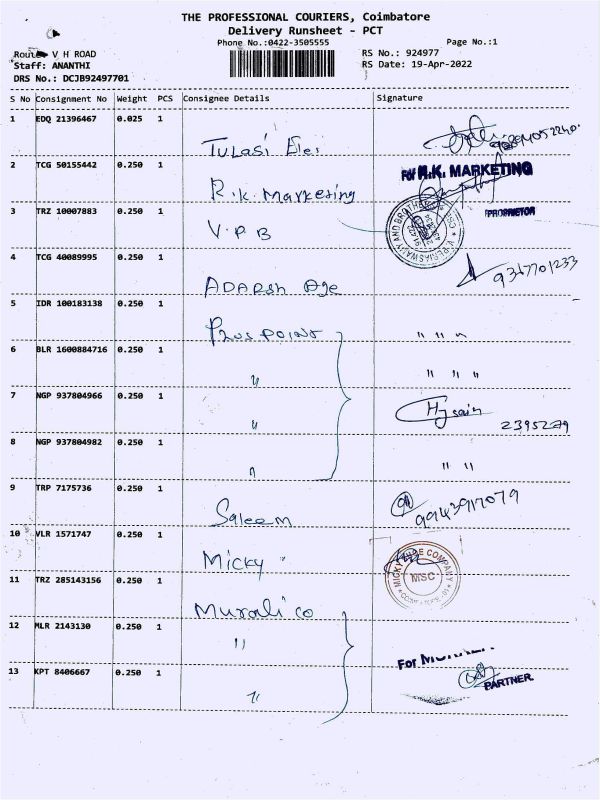 THE PROFESSIONAL COURIERS, Coimbatore
Delivery Runsheet - PCT
Phone No.:0422-3505555
Page No.:1
Route V H ROAD
RS No.: 924977
Staff: ANANTHI
RS Date: 19-Apr-2022
DRS No.: DCJB92497701
S No Consignment No Weight PCS Consignee Details Signature
1 EDQ 21396467 0.025 1 Tulasi Elei
2 TCG 50155442 0.250 1 R.K. Marketing For R.K. MARKETING
PROPRIETOR
3 TRZ 10007883 0.250 1 V.P.B
4 TCG 40089995 0.250 1 ADARSH Age 9367701233
5 IDR 100183138 0.250 1 Plus point " " "
6 BLR 1600884716 0.250 1 " " " "
7 NGP 937804966 0.250 1 " 2395279
8 NGP 937804982 0.250 1 " " "
9 TRP 7175736 0.250 1 Saleem 9943917079
10 VLR 1571747 0.250 1 Micky MSC
11 TRZ 285143156 0.250 1 Murali co
12 MLR 2143130 0.250 1 " For
13 KPT 8406667 0.250 1 " PARTNER.